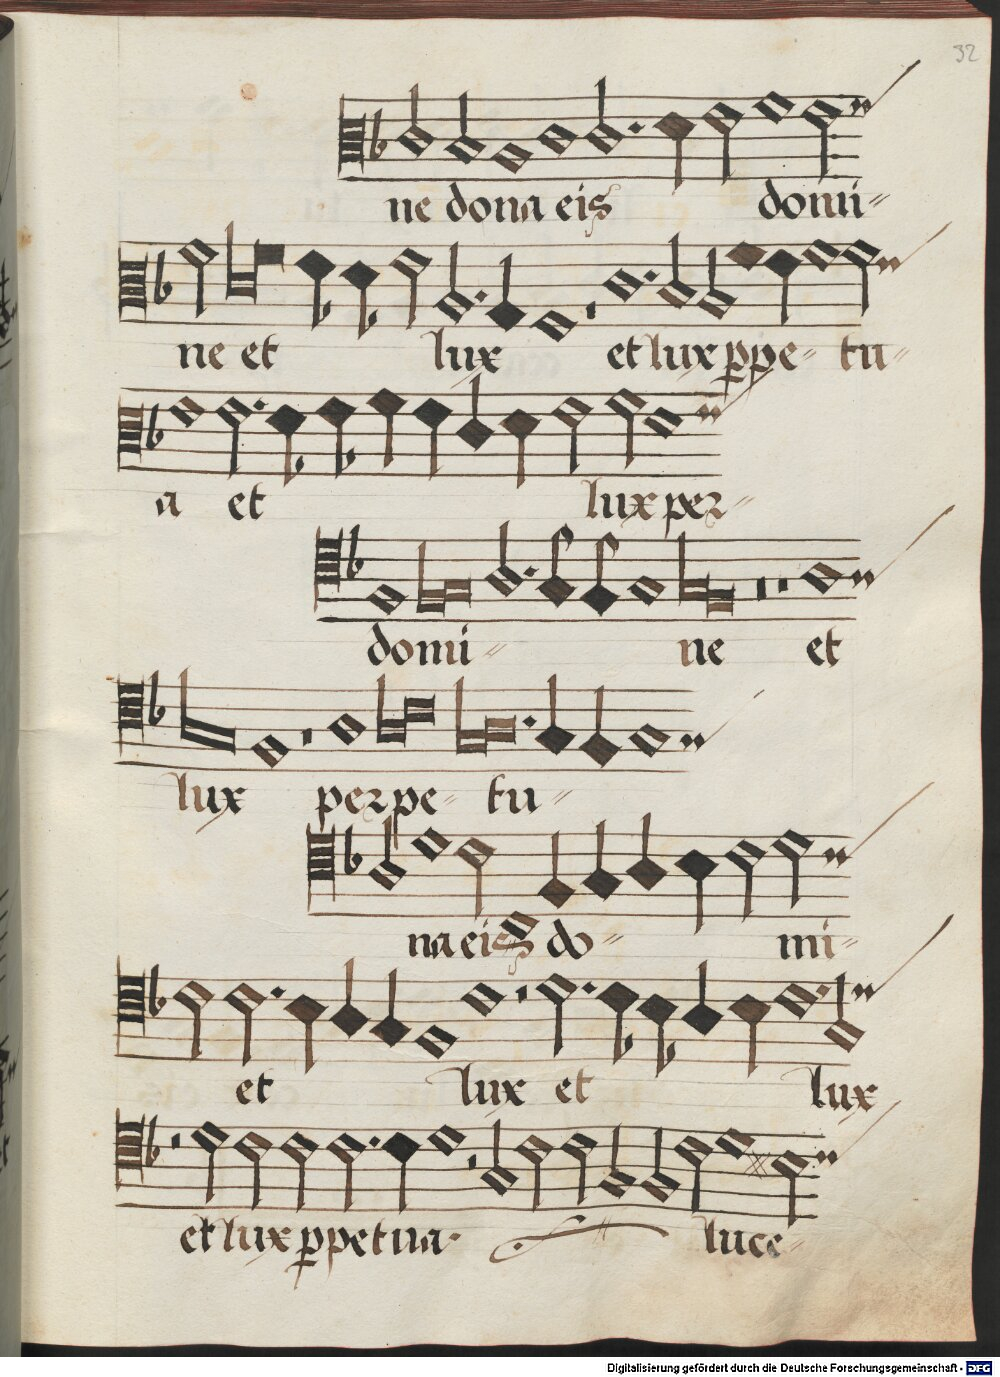 32
ne dona eis domi-
ne et lux et lux ppe- tu-
a et lux per-
domi- ne et
lux perpe- tu-
na eis do- mi-
et lux et lux
et lux ppetua. luce-
Digitalisierung gefördert durch die Deutsche Forschungsgemeinschaft - DFG